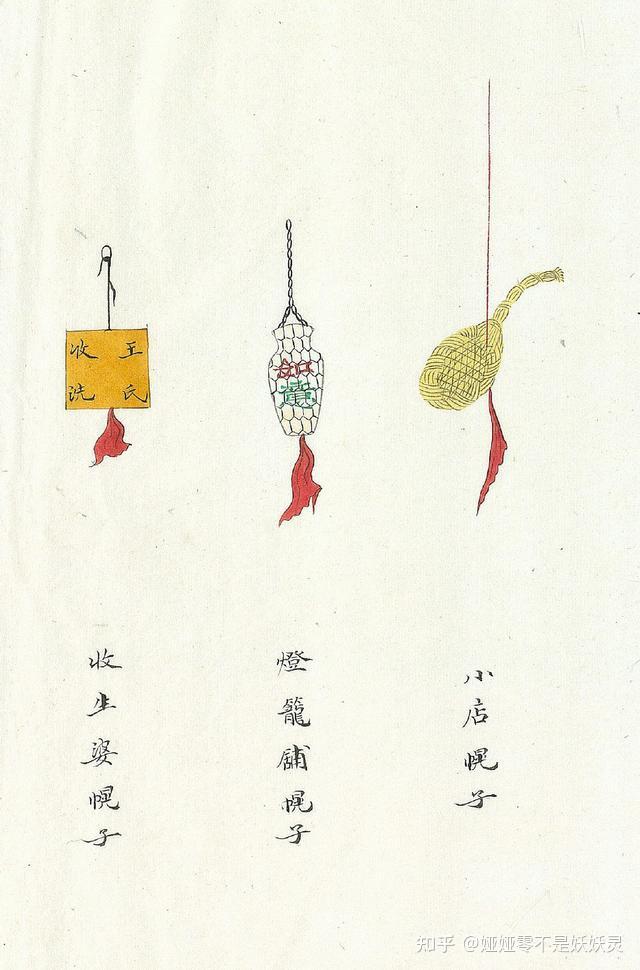 小店幌子
燈籠舖幌子
王氏
收洗
收生婆幌子
知乎 @娅娅零不是妖妖灵